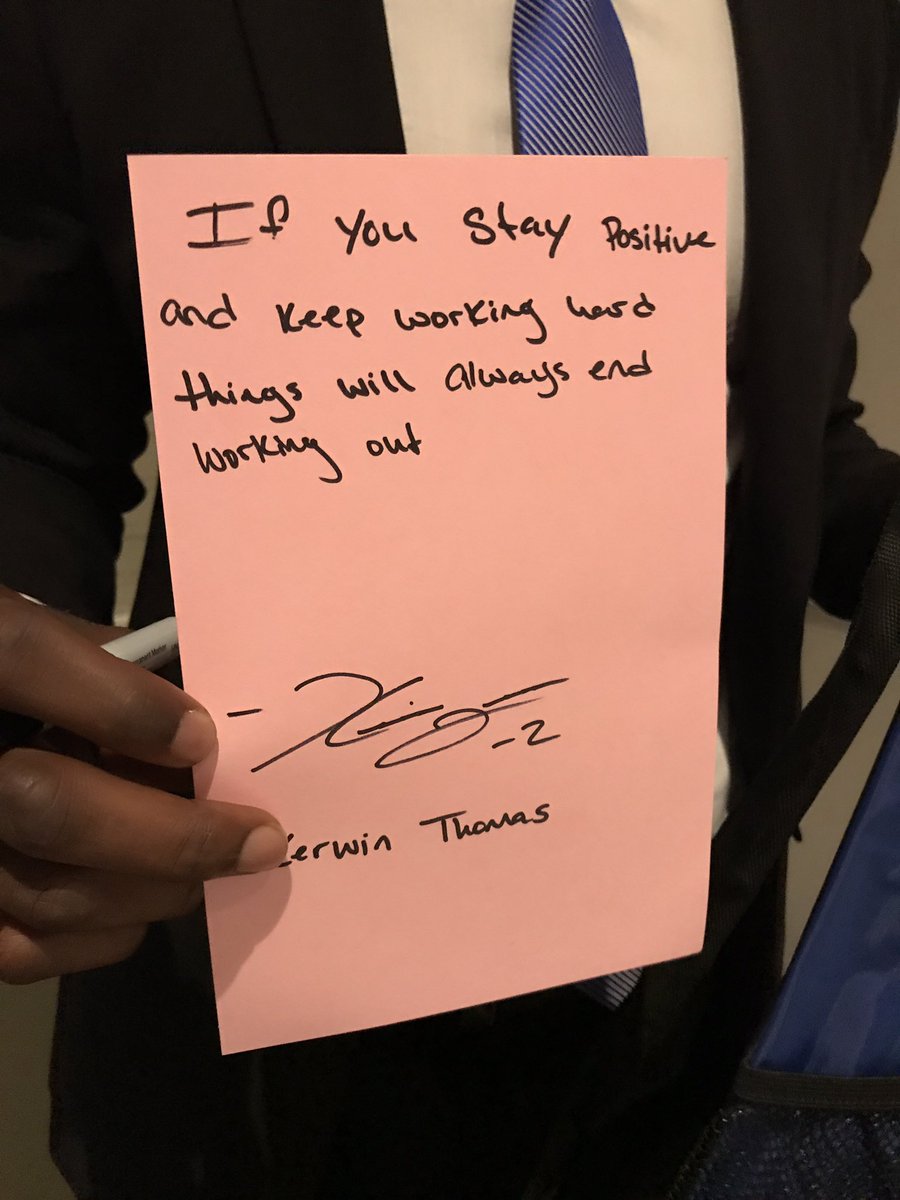 If you stay Positive
and keep working hard
things will always end
working out
-2
Thomas